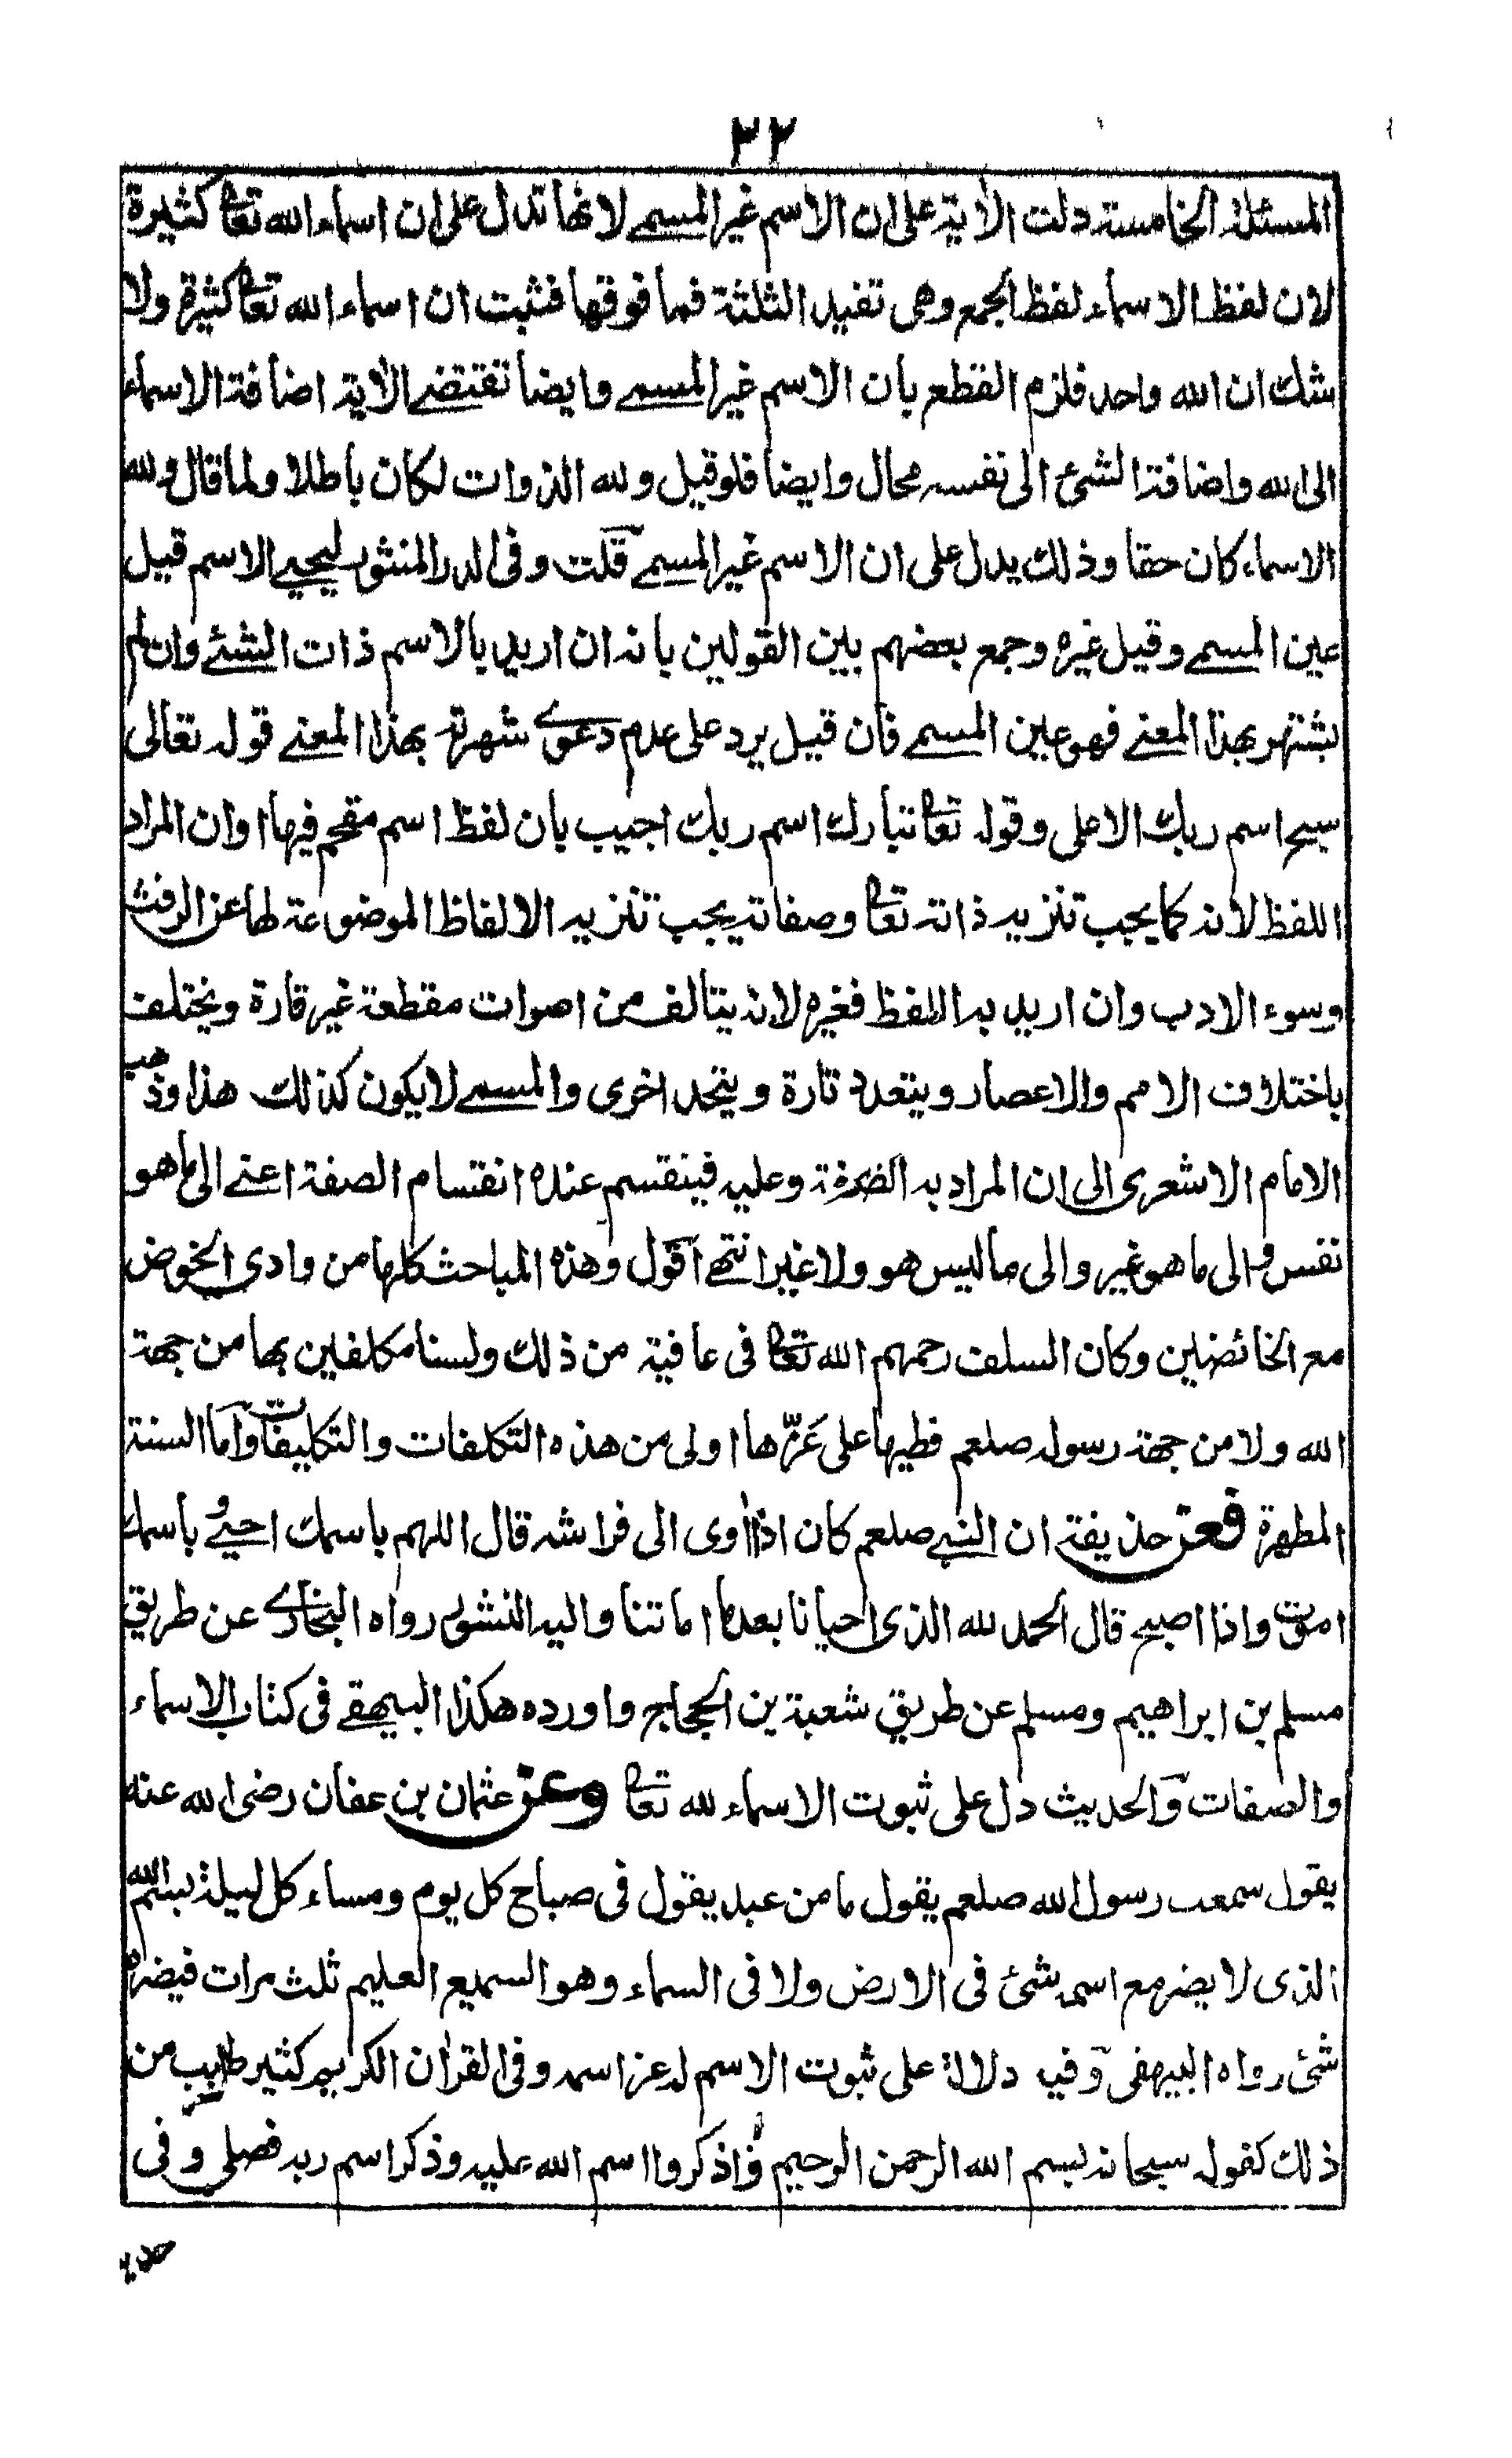 ٢٢
المسئلة الخامسة دلت الآية على ان الاسم غير المسمى لانها تدل على ان اسماء الله تعالى كثيرة
لان لفظ الاسماء لفظ الجمع وهى تفيد الثلثة فما فوقها فثبت ان اسماء الله تعالى كثيرة ولا
شك ان الله واحد فلزم القطع بان الاسم غير المسمى وايضا تقتضى الآية اضافة الاسماء
الى الله واضافة الشئ الى نفسه محال وايضا فلو قيل ولله الذوات لكان باطلا ولما قال ولله
الاسماء كان حقا وذلك يدل على ان الاسم غير المسمى قلت وفى الدر المنثور ليحيى الاسم قيل
عين المسمى وقيل غيره وجمع بعضهم بين القولين بانه ان اريد بالاسم ذات الشئ وان لم
يشتهر بهذا المعنى فهو عين المسمى فان قيل يرد على عدم دعوى شهرته بهذا المعنى قوله تعالى
سبح اسم ربك الاعلى وقوله تعالى تبارك اسم ربك اجيب بان لفظ اسم مقحم فيها او ان المراد
اللفظ لانه كما يجب تنزيه ذاته تعالى وصفاته يجب تنزيه الالفاظ الموضوعة لها عن الرفث
وسوء الادب وان اريد به اللفظ فغيره لانه يتالف من اصوات مقطعة غير قارة ويختلف
باختلاف الامم والاعصار ويتعدد تارة ويتحد اخرى والمسمى لا يكون كذلك هذا وذهب
الامام الاشعرى الى ان المراد به الصفة وعليه فينقسم عنده انقسام الصفة اعنى الى ما هو
نفس والى ما هو غير والى ما ليس هو ولا غير انتهى اقول وهذه المباحث كلها من وادى الخوض
مع الخائضين وكان السلف رحمهم الله تعالى فى عافية من ذلك ولسنا مكلفين بها من جهة
الله ولا من جهة رسوله صلعم فطيها على غَرّها اولى من هذه التكلفات والتكليفات واما السنة
المطهرة فعن حذيفة ان النبى صلعم كان اذا اوى الى فراشه قال اللهم باسمك احيى وباسمك
اموت واذا اصبح قال الحمد لله الذى احيانا بعد ما اماتنا واليه النشور رواه البخارى عن طريق
مسلم بن ابراهيم ومسلم عن طريق شعبة بن الحجاج واورده هكذا البيهقى فى كتاب الاسماء
والصفات والحديث دل على ثبوت الاسماء لله تعالى وعن عثمان بن عفان رضى الله عنه
يقول سمعت رسول الله صلعم يقول ما من عبد يقول فى صباح كل يوم ومساء كل ليلة بسم الله
الذى لا يضر مع اسمه شئ فى الارض ولا فى السماء وهو السميع العليم ثلث مرات فيضره
شئ رواه البيهقى وفيه دلالة على ثبوت الاسم له عز اسمه وفى القرآن الكريم كثير طيب من
ذلك كقوله سبحانه بسم الله الرحمن الرحيم واذكروا اسم الله عليه وذكر اسم ربه فصلى وفى